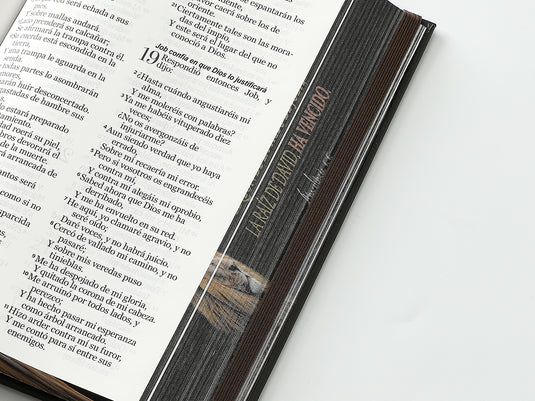 ver será echada a sus
y sobre mallas andará.
prenderá su calcañar;
Se afirmará la trampa contra él.
cuerda está escondida en la
tierra,
Y una trampa le aguarda en la
todas partes lo asombrarán
harán huir desconcertado.
gastadas de hambre sus
estará preparado
roerá su piel,
devorará el
de la muerte.
arrancada de
será el
como si no
espantarán los
caerá sobre los de
oriente.
21 Ciertamente tales son las mora-
das del impío,
Y este será el lugar del que no
conoció a Dios.
Job confía en que Dios lo justificará
19 Respondió entonces Job, y
dijo:
2 ¿Hasta cuándo angustiaréis mi
alma,
Y me moleréis con palabras?
3 Ya me habéis vituperado diez
veces;
¿No os avergonzáis de
injuriarme?
4 Aun siendo verdad que yo haya
errado,
Sobre mí recaería mi error.
5 Pero si vosotros os engrandecéis
contra mí,
Y contra mí alegáis mi oprobio,
6 Sabed ahora que Dios me ha
derribado,
Y me ha envuelto en su red.
7 He aquí, yo clamaré agravio, y no
seré oído;
Daré voces, y no habrá juicio.
8 Cercó de vallado mi camino, y no
pasaré;
Y sobre mis veredas puso
tinieblas.
9 Me ha despojado de mi gloria,
Y quitado la corona de mi cabeza.
10 Me arruinó por todos lados, y
perezco;
Y ha hecho pasar mi esperanza
como árbol arrancado.
11 Hizo arder contra mí su furor,
Y me contó para sí entre sus
enemigos.
LA RAÍZ DE DAVID, HA VENCIDO.